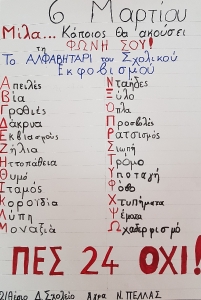 6 Μαρτίου
Μίλα... Κάποιος θα ακούσει
τη ΦΩΝΗ ΣΟΥ!
Το ΑΛΦΑΒΗΤΑΡΙ του Σχολικού
Εκφοβισμού
Απειλές
Βία
Γροθιές
Δάκρυα
Εκβιασμούς
Ζήλια
Ηττοπάθεια
Θυμό
Ιταμός
Κοροϊδία
Λύπη
Μοναξιά
Νταήδες
Ξύλο
Όπλα
Προσβολές
Ρατσισμός
Σιωπή
Τρόμο
Υποταγή
Φόβο
Χτυπήματα
Ψέματα
Ωχαδερφισμό
ΠΕΣ 24 ΟΧΙ!
2/θέσιο Δ. Σχολείο Άγρα Ν. ΠΕΛΛΑΣ